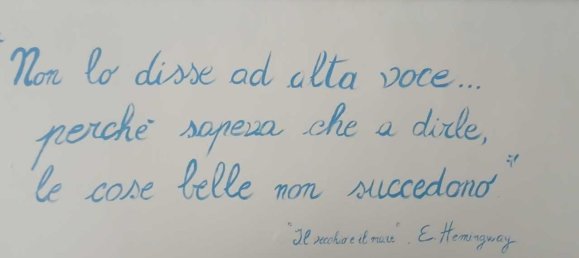 "Non lo disse ad alta voce...
perchè sapeva che a dirle,
le cose belle non succedono"
"Il vecchio e il mare". E. Hemingway